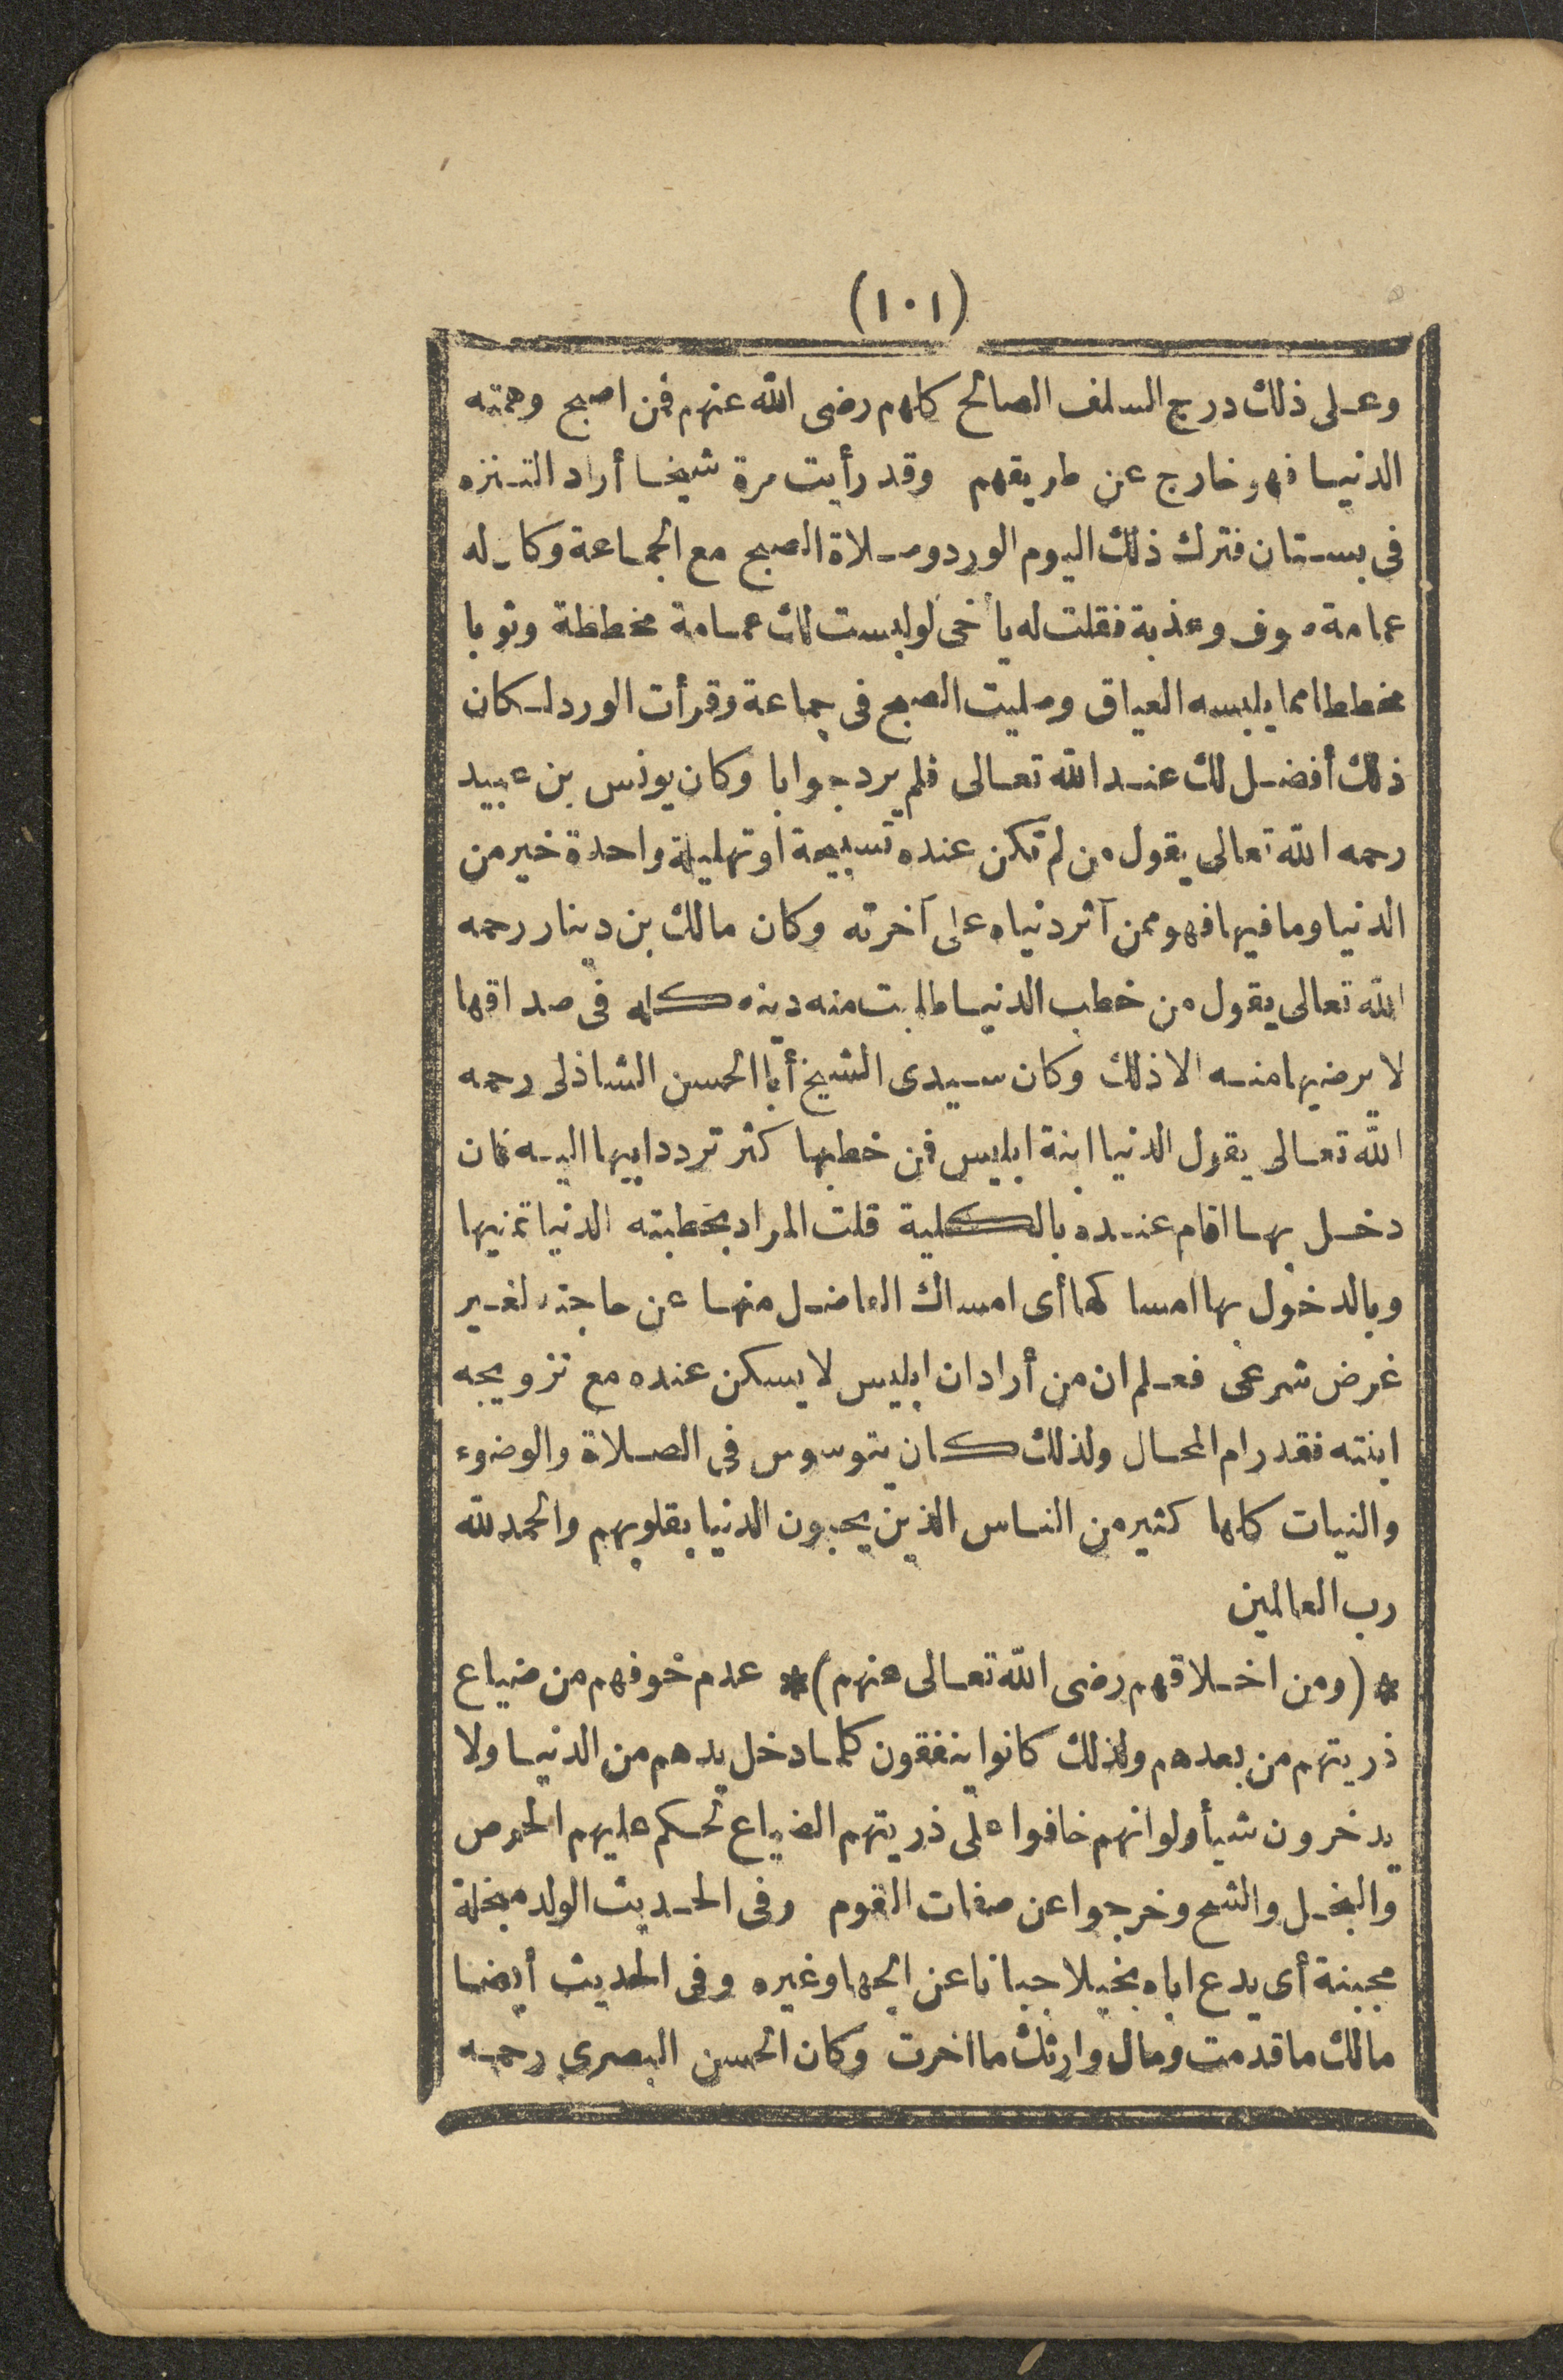 (١٠١)
وعلى ذلك درج السلف الصالح كلهم رضى الله عنهم فمن اصبح وهمته
الدنيا فهو خارج عن طريقهم وقد رأيت مرة شيخا أراد التنزه
فى بستان فترك ذلك اليوم الورد وصلاة الصبح مع الجماعة وكا له
عمامة صوف وعذبة فقلت له يا أخى لو لبست لك عمامة مخططة وثوبا
مخططا مما يلبسه العياق وصليت الصبح فى جماعة وقرأت الورد لكان
ذلك أفضل لك عند الله تعالى فلم يرد جوابا وكان يونس بن عبيد
رحمه الله تعالى يقول من لم تكن عنده تسبيحة أو تهليلة واحدة خير من
الدنيا وما فيها فهو ممن آثر دنياه على آخرته وكان مالك بن دينار رحمه
الله تعالى يقول من خطب الدنيا طلبت منه دينه كله فى صداقها
لا يرضيها منه الا ذلك وكان سيدى الشيخ أبا الحسن الشاذلى رحمه
الله تعالى يقول الدنيا ابنة ابليس فمن خطبها كثر تردد ابيها اليه فان
دخل بها اقام عنده بالكلية قلت المراد بخطبته الدنيا تمنيها
وبالدخول بها امساكها أى امساك الفاضل منها عن حاجته لغير
غرض شرعى فعلم ان من أراد ان ابليس لا يسكن عنده مع تزويجه
ابنته فقد رام المحال ولذلك كان يتوسوس فى الصلاة والوضوء
والنيات كلها كثير من الناس الذين يحبون الدنيا بقلوبهم والحمد لله
رب العالمين
* (ومن اخلاقهم رضى الله تعالى عنهم) * عدم خوفهم من ضياع
ذريتهم من بعدهم ولذلك كانوا ينفقون كلما دخل يدهم من الدنيا ولا
يدخرون شيأ ولو انهم خافوا على ذريتهم الضياع تحكم عليهم الحرص
والبخل والشح وخرجوا عن صفات القوم وفى الحديث الولد مبخلة
مجبنة أى يدع اباه بخيلا جبانا عن الجها وغيره وفى الحديث أيضا
مالك ما قدمت ومال وارثك ما اخرت وكان الحسن البصرى رحمه